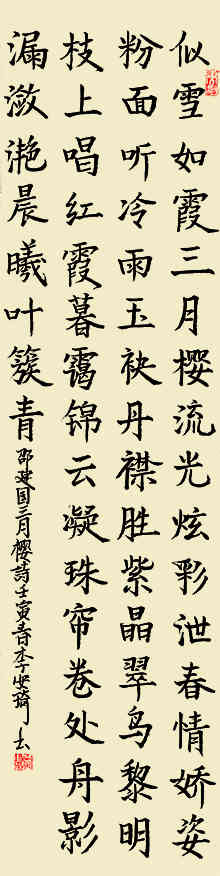 似雪如霞三月樱流光炫彩泄春情娇姿
粉面听冷雨玉袂丹襟胜紫晶翠鸟黎明
枝上唱红霞暮霭锦云凝珠帘卷处舟影
漏潋滟晨曦叶簇青
邵建国三月樱詩壬寅春李琦书